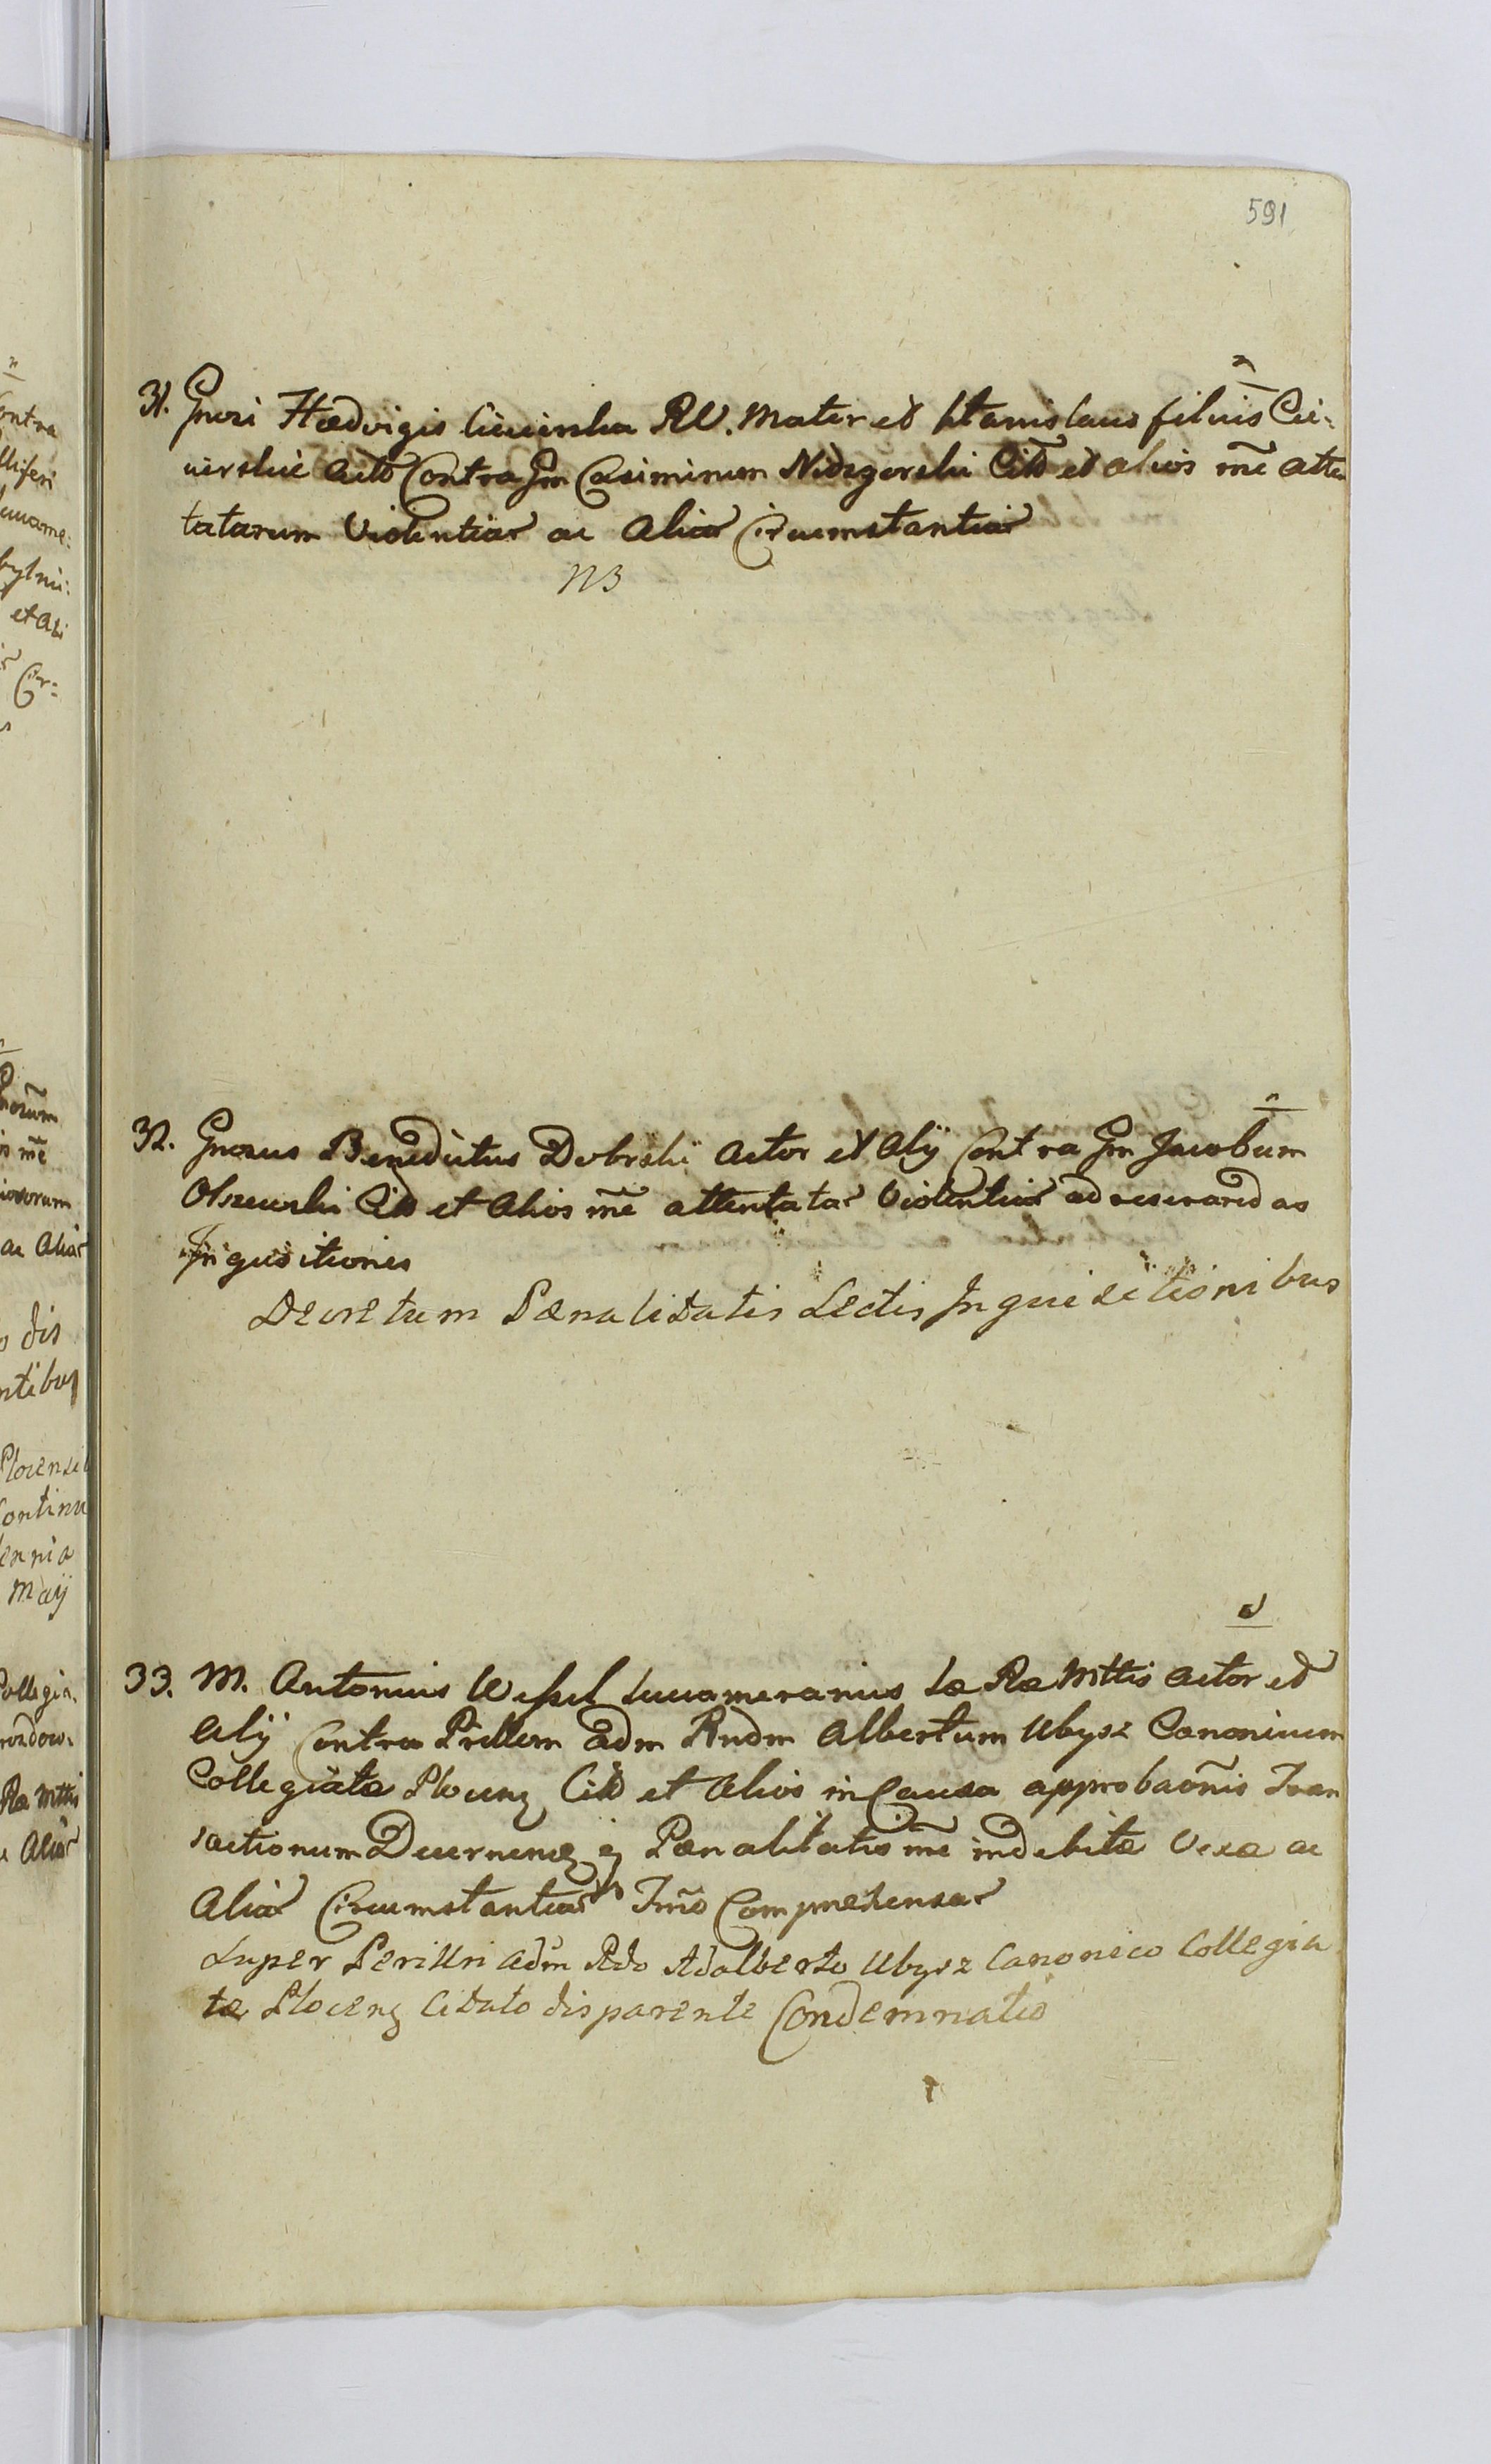 591
n
31. Gnosi Hædvigis Ciecierska RV. Mater et Stanislaus filius Cie-
cierskie Acto Contra Gm Casimirum Nidzgorski Citt et alios rne atten
tatarum Violentiar ac Aliar Circumstantiar
NB
n
32. Gnosus Benedictus Dobrski Actor et Alij Contra Gm Jacobum
Olszewski Citt et Alios rne attentatar Violentiar ad reserandas
Inquisitiones
Decretum Pænalitatis Lectis Inquisitionibus
d
33. M. Antonius Wessel Succamerarius Sæ Ræ Mttis Actor et
Alij Contra Prillem Adm Rndm Albertum Ubysz Canonicum
Collegiatæ Plocens Citt et Alios in Causa approbaõnis Tran
sactionum Decernen Pænalitatis rne indebitæ Vexæ ac
Aliar Circumstantiar Trno Comprehensar
Super Perillri Adm Rdo Adalberto Ubysz Canonico Collegia
tæ Plocens Citato disparente Condemnatio